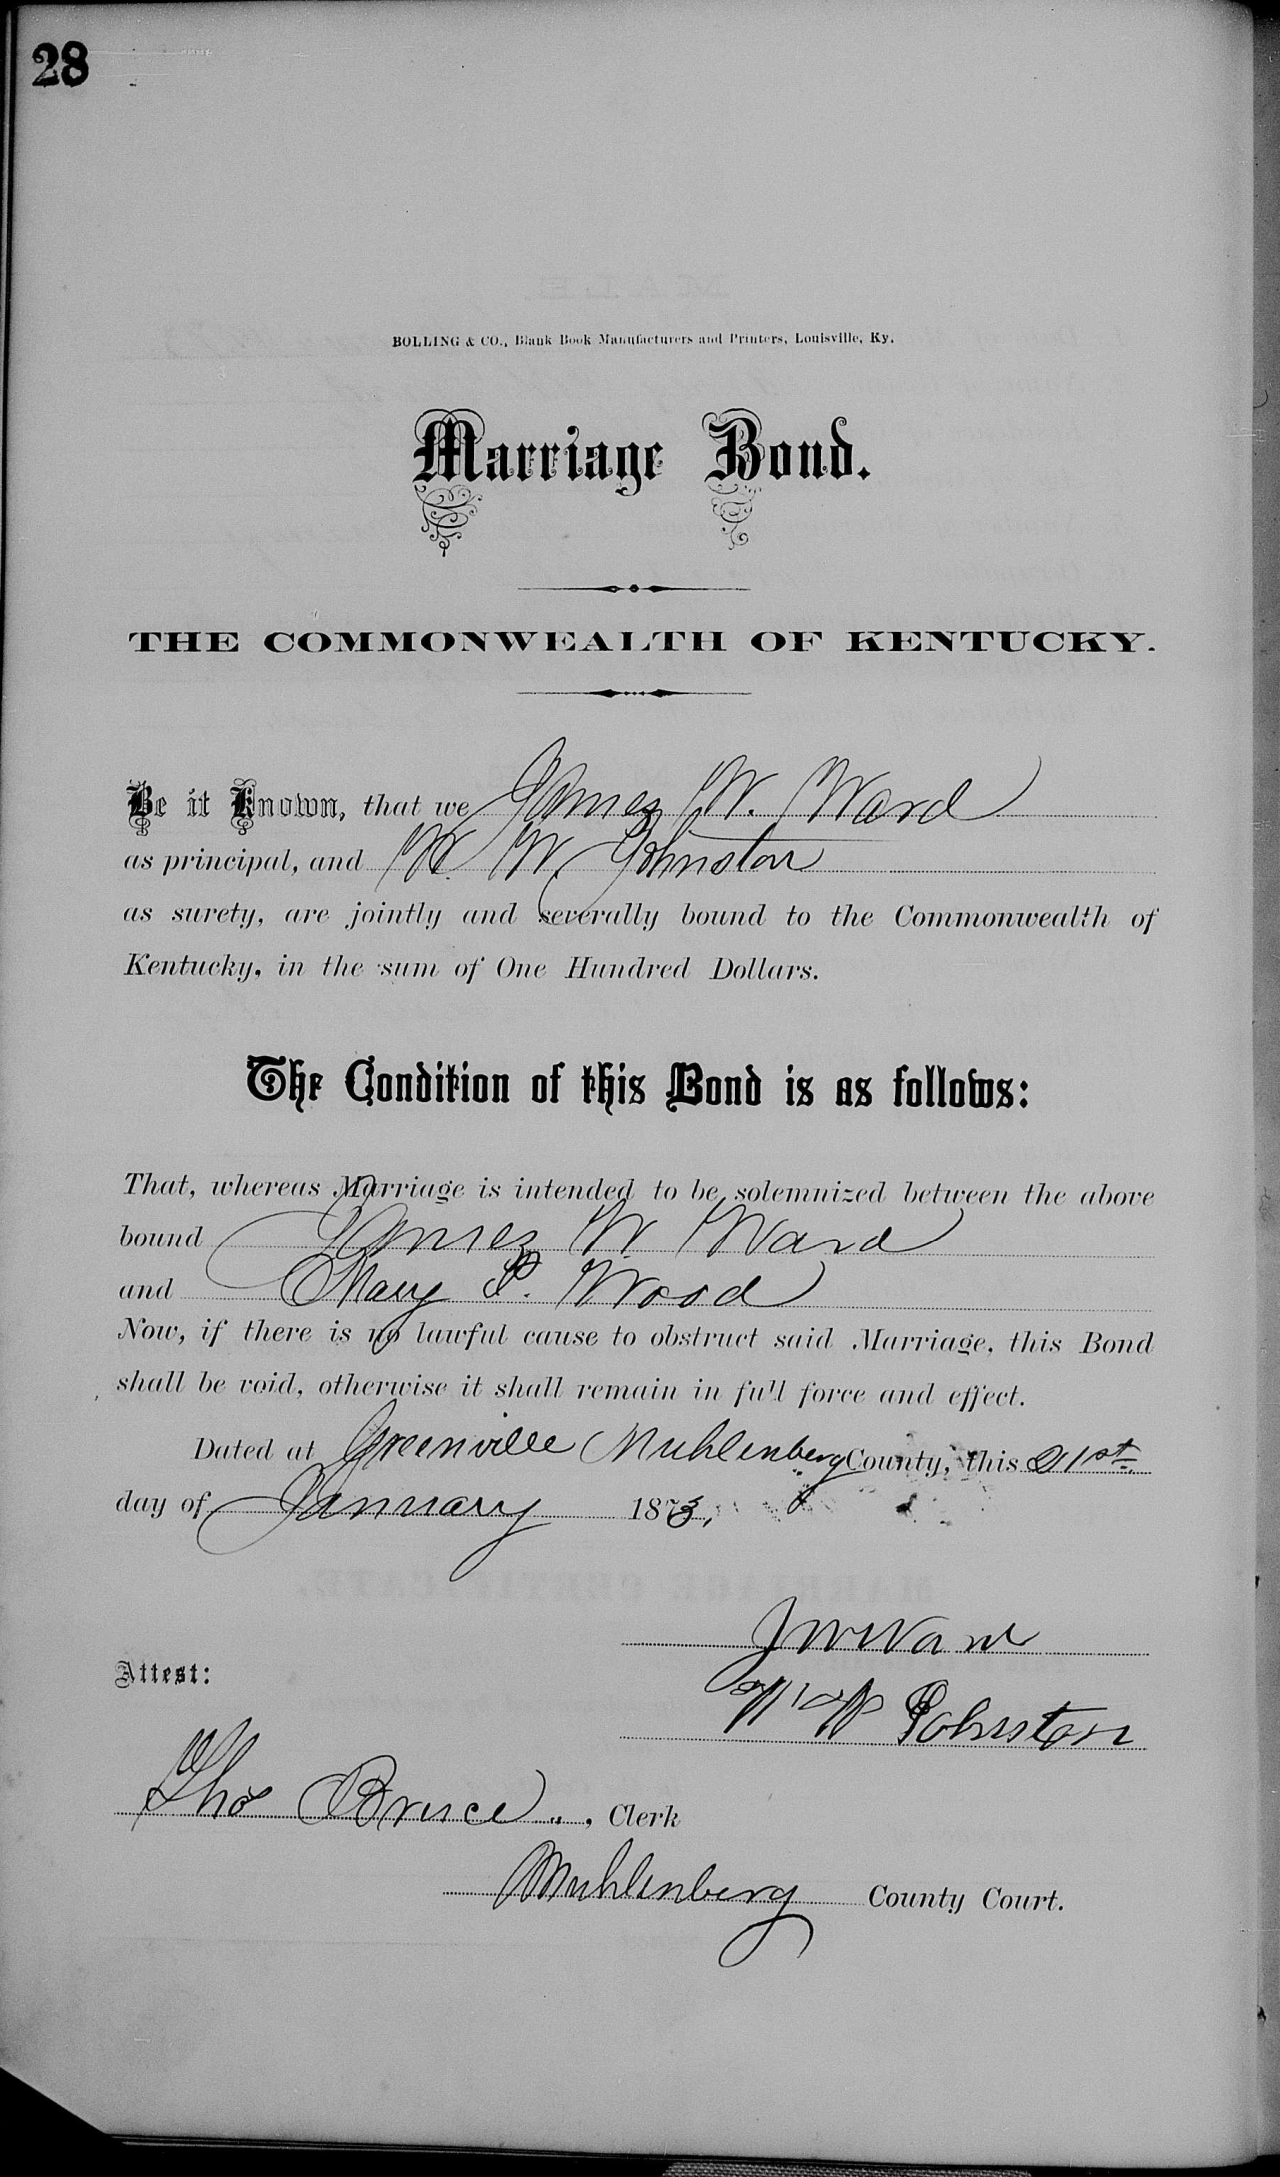 28
BOLLING & CO., Blank Book Manufacturers and Printers, Louisville, Ky.
Marriage Bond.
THE COMMONWEALTH OF KENTUCKY.
Be it Known, that we James W. Ward
as principal, and W. W. Johnston
as surety, are jointly and severally bound to the Commonwealth of
Kentucky, in the sum of One Hundred Dollars.
The Condition of this Bond is as follows:
That, whereas Marriage is intended to be solemnized between the above
bound James W. Ward
and Mary P. Wood
Now, if there is no lawful cause to obstruct said Marriage, this Bond
shall be void, otherwise it shall remain in full force and effect.
Dated at Greenville Muhlenberg County, this 21st
day of January 1873,
J W Ward
W W Johnston
Attest:
Thos Bruce , Clerk
Muhlenberg County Court.